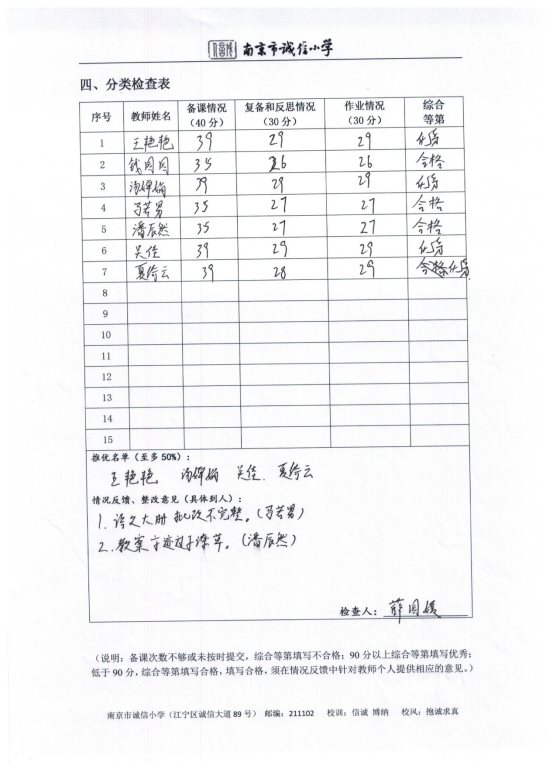 南京市诚信小学
四、分类检查表
序号 教师姓名 备课情况（40分） 复备和反思情况（30分） 作业情况（30分） 综合等第
1 王艳艳 39 29 29 优秀
2 钱园园 35 26 26 合格
3 39 29 29 优秀
4 35 27 27 合格
5 潘辰然 35 27 27 合格
6 吴佳 39 29 29 优秀
7 夏倚云 39 28 29 优秀
8
9
10
11
12
13
14
15
推优名单（至多50%）：
王艳艳 吴佳、夏倚云
情况反馈、整改意见（具体到人）：
1. 语文大册批改不完整。
2. 教案字迹过于潦草。（潘辰然）
检查人：薛园媛
（说明：备课次数不够或未按时提交，综合等第填写不合格；90分以上综合等第填写优秀；
低于90分，综合等第填写合格，填写合格，须在情况反馈中针对教师个人提供相应的意见。）
南京市诚信小学（江宁区诚信大道89号） 邮编：211102 校训：信诚 博纳 校风：抱诚求真